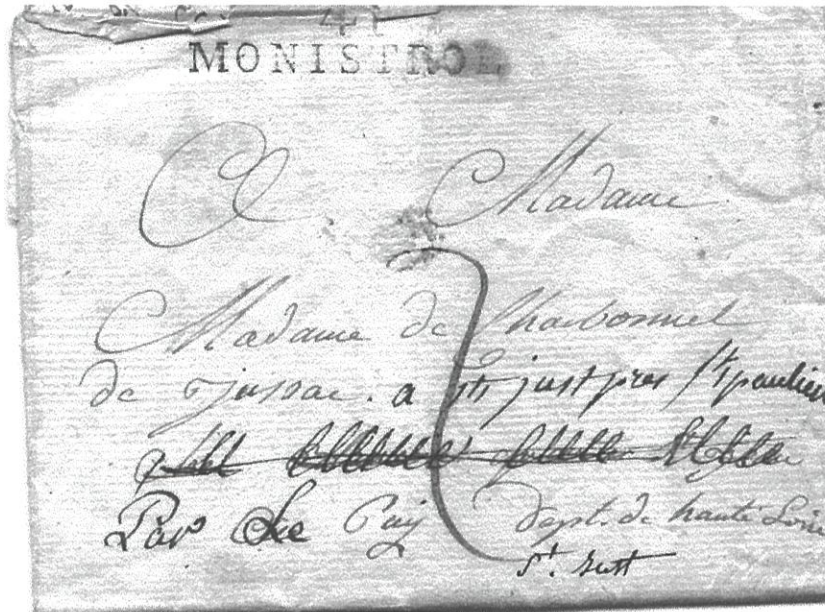 41
MONISTROL
A Madame
Madame de Charbonnel
de Jussac. a St just pres St paulien
Par Le Puy dept. de haute Loire
St. Just